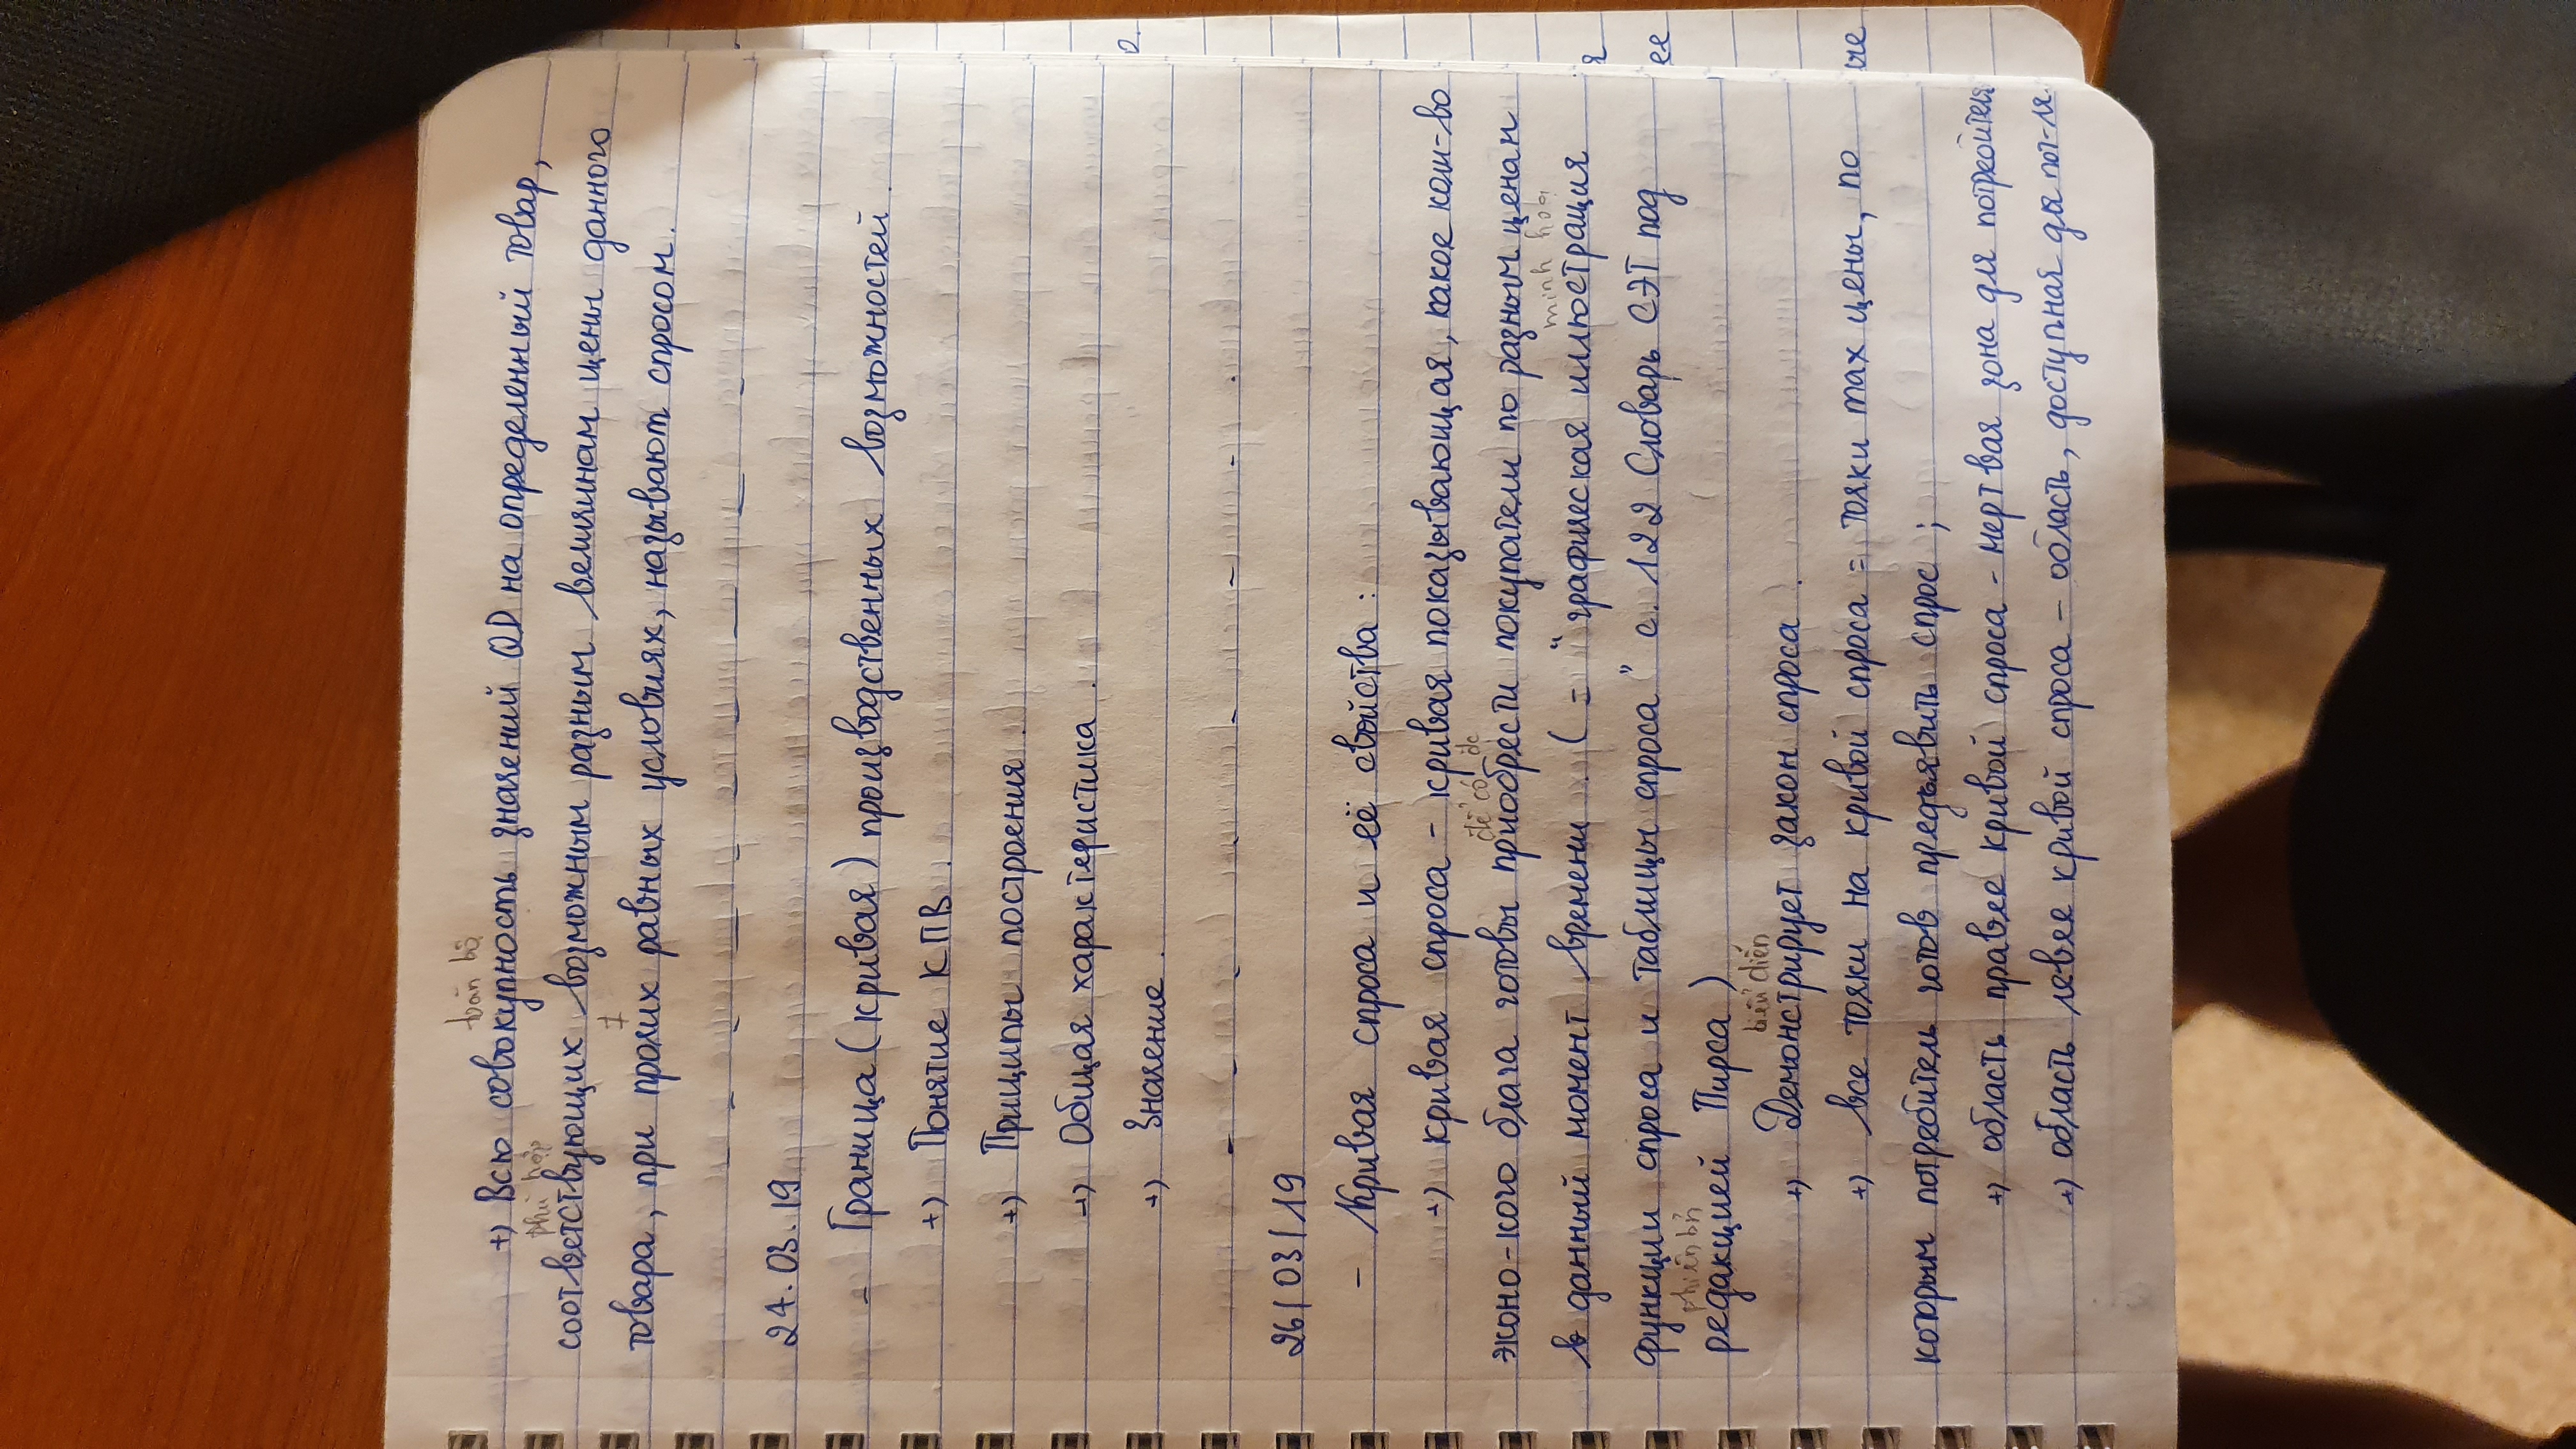 toàn bộ
+) Всю совокупность значений QD на определенный товар,
phù hợp
соответствующих возможным разным величинам цены данного
товара, при прочих равных условиях, называют спросом.
24.03.19
- Граница (кривая) производственных возможностей.
+) Понятие КПВ.
+) Приципы построения.
+) Общая характеристика.
+) Значение.
26/03/19
- Кривая спроса и её свойства:
+) кривая спроса - кривая показывающая, какое кол-во
để có đc
эконо-кого блага готовы приобрести покупатели по разным ценам
minh hoạ
в данный момент времени. (= "графическая иллюстрация
функции спроса и таблицы спроса" с. 122 Словарь СЭТ под
phiên bản
редакцией Пирса)
biểu diễn
+) Демонстрирует закон спроса.
+) все точки на кривой спроса = точки max цены, по
которым потребитель готов предъявить спрос;
+) область правее кривой спроса - мертвая зона для потребителя
+) область левее кривой спроса - область, доступная для пот-ля.